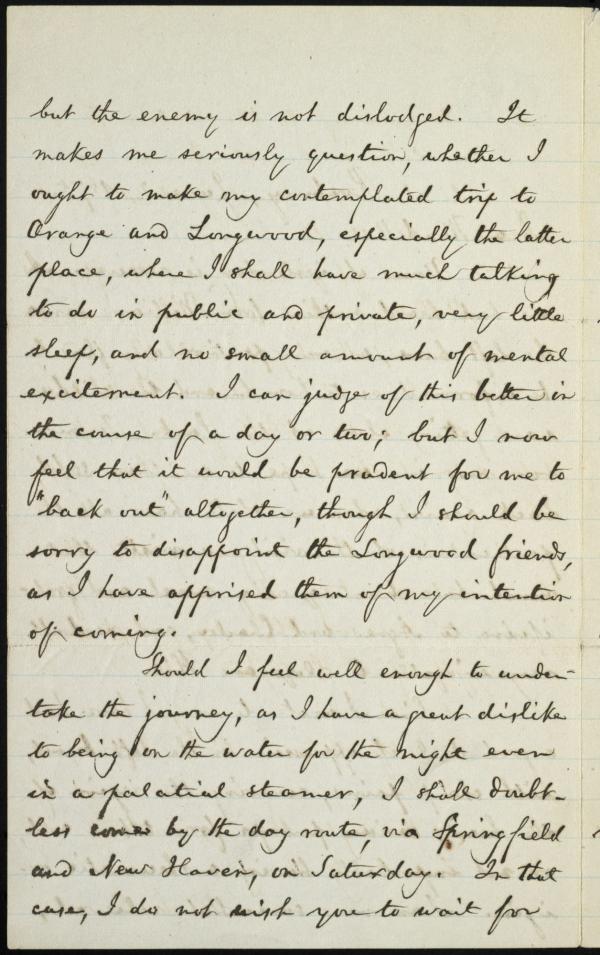 but the enemy is not dislodged. It
makes me seriously question, whether I
ought to make my contemplated trip to
Orange and Longwood, especially the latter
place, where I shall have much talking
to do in public and private, very little
sleep, and no small amount of mental
excitement. I can judge of this better in
the course of a day or two; but I now
feel that it would be prudent for me to
"back out" altogether, though I should be
sorry to disappoint the Longwood friends,
as I have apprised them of my intention
of coming.
Should I feel well enough to under-
take the journey, as I have a great dislike
to being on the water for the night even
in a palatial steamer, I shall doubt-
less come by the day route, via Springfield
and New Haven, on Saturday. In that
case, I do not wish you to wait for